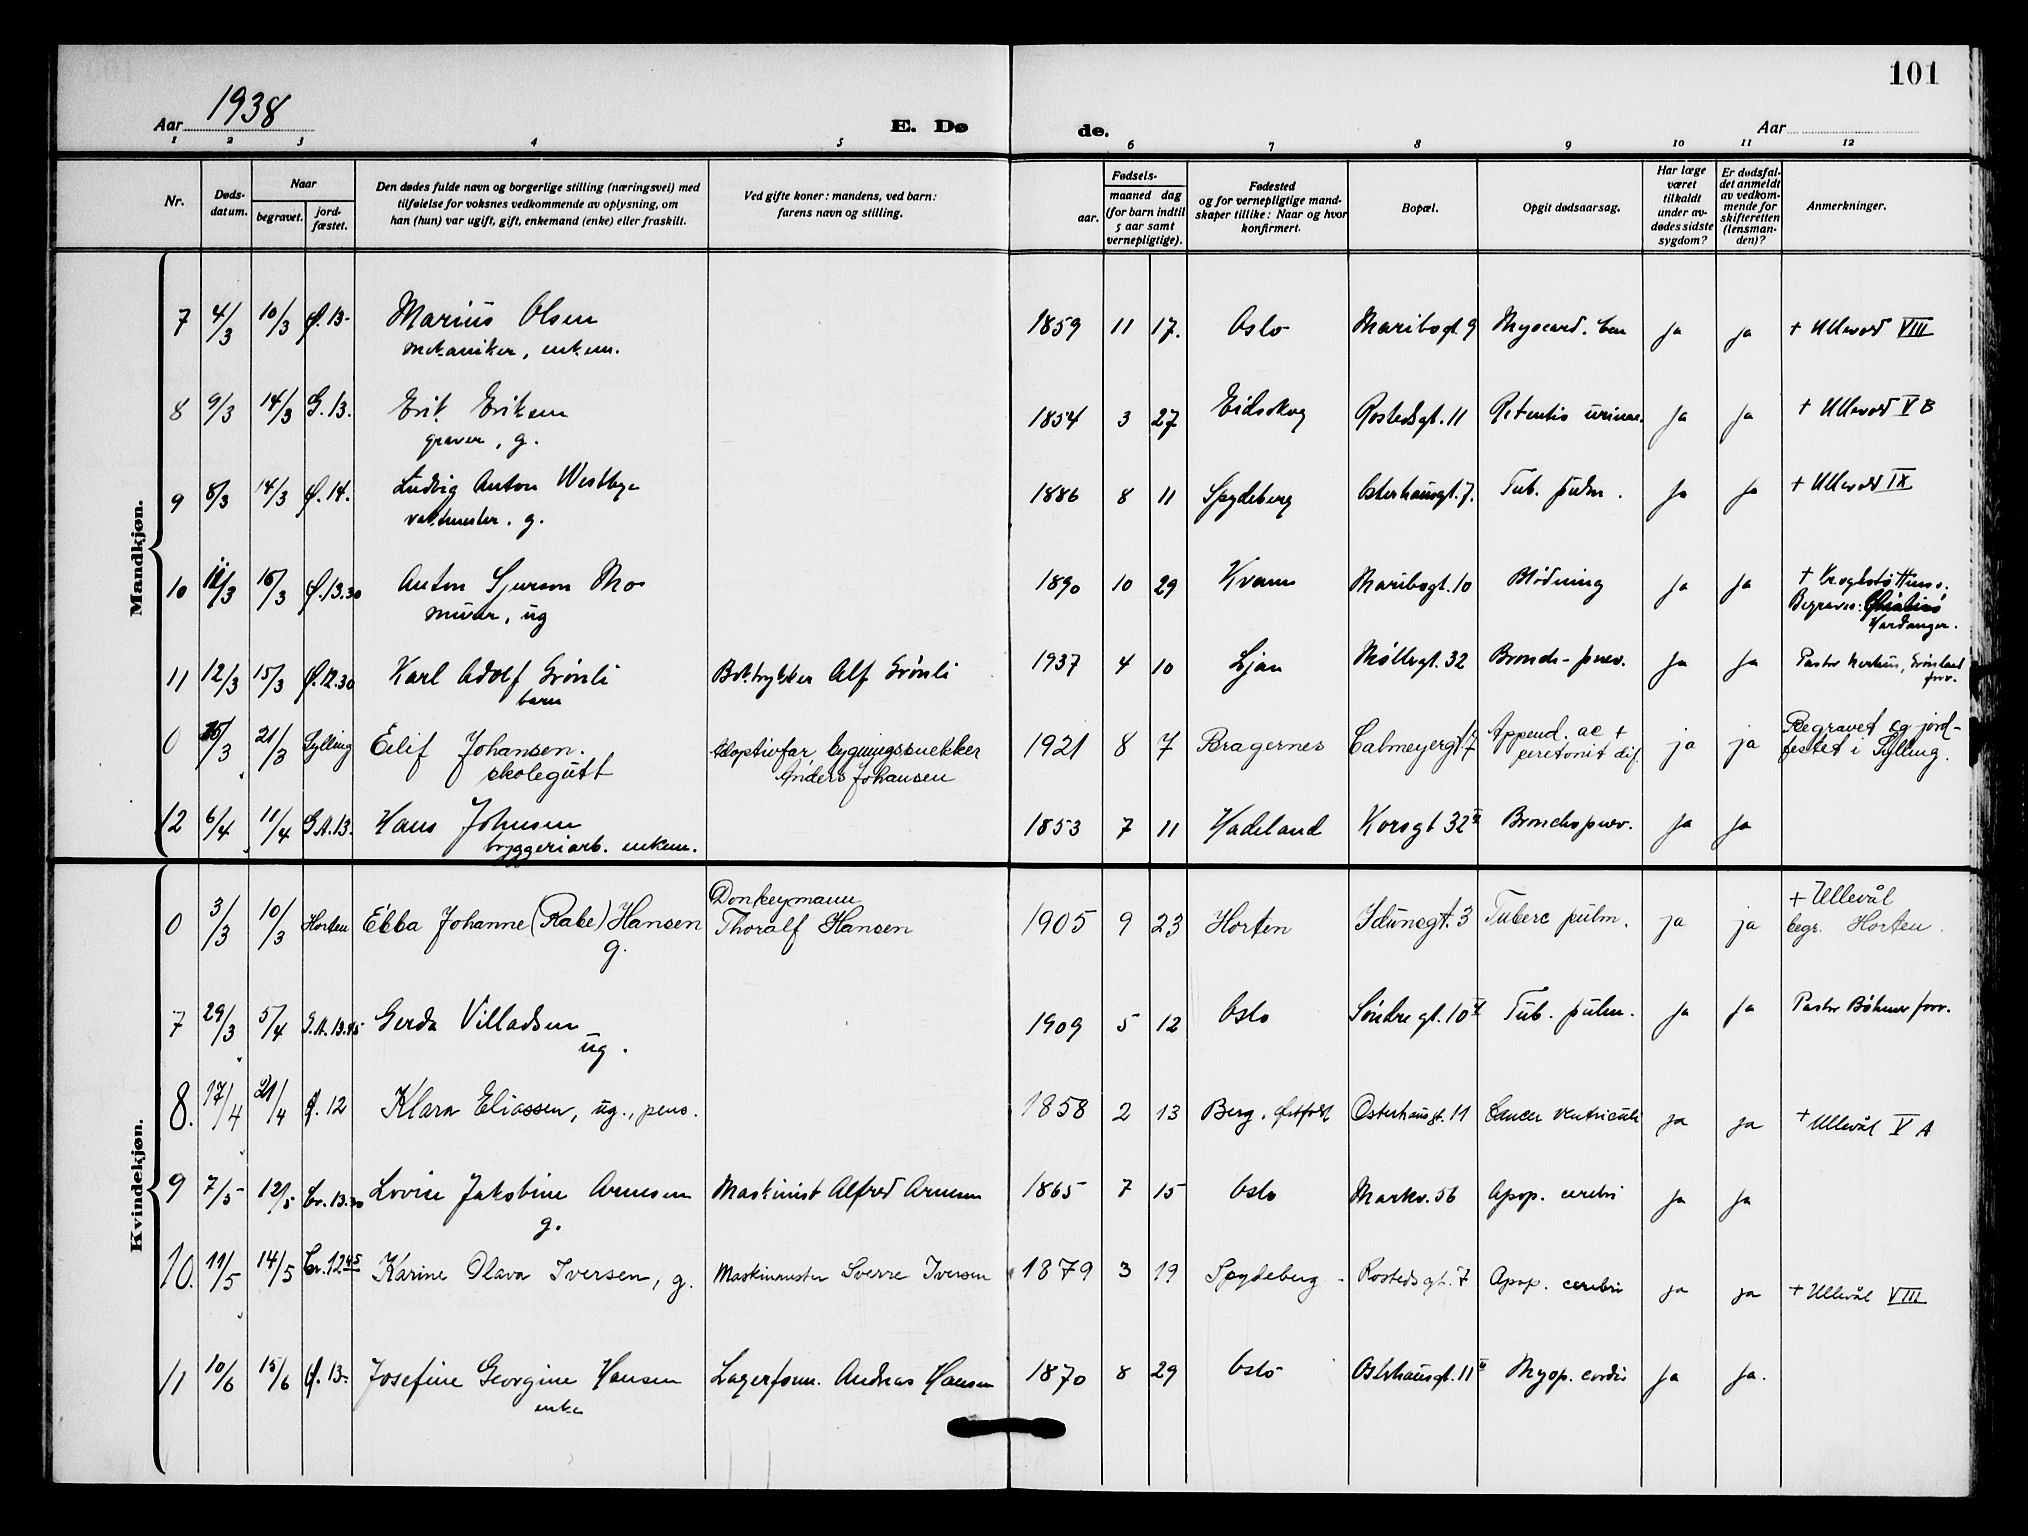 101
Aar 1938
E. Dø de.
Aar
1 2 3 4 5 6 7 8 9 10 11 12
Nr.
Døds-
datum.
Naar
begravet.
jord-
fæstet.
Den dødes fulde navn og borgerlige stilling (næringsvei) med
tilføielse for voksnes vedkommende av oplysning, om
han (hun) var ugift, gift, enkemand (enke) eller fraskilt.
Ved gifte koner: mandens, ved barn:
farens navn og stilling.
Fødsels-
aar.
maaned dag
(for barn indtil
5 aar samt
vernepligtige).
Fødested
og for vernepligtige mand-
skaper tillike: Naar og hvor
konfirmert.
Bopæl.
Opgit dødsaarsag.
Har læge
været
tilkaldt
under av-
dødes sidste
sygdom?
Er dødsfal-
det anmeldt
av vedkom-
mende for
skifteretten
(lensman-
den)?
Anmerkninger.
Mandkjøn.
7 4/3 10/3 Ø. 13- Marius Olsen 1859 11 17. Oslo Maribogt. 9 Myocard. ja ja + Ullevål VIII
mekaniker, enkem.
8 9/3 14/3 G. 13. Erik Eriksen 1854 3 27 Eidskog Rostedsgt. 11 Retentio urinae. ja ja + Ullevål V B
graver, g.
9 8/3 14/3 Ø. 14. Ludvig Anton Westbye 1886 8 11 Spydeberg Osterhausgt. 7. Tub. pulm. ja ja + Ullevål IX
vaktmester. g.
10 /3 16/3 Ø. 13.30 Anton Sjurson Mo 1890 10 29 Kvam Maribogt. 10 Blødning ja ja + Krogstøtten.
murer, ug Begraves:
Hardanger.
11 12/3 15/3 Ø. 12.30 Karl Adolf Grønli Boktrykker Alf Grønli 1937 4 10 Ljan Møllergt. 32 Bronch-pnev. ja ja Pastor Grønland
barn forr.
0 /3 21/3 Sylling Eilif Johansen. Adoptivfar bygningssnekker 1921 8 7 Bragernes Calmeyergt. 7 Append. ac + ja ja Begravet og jord-
skolegutt Anders Johansen peretonit dif. festet i Sylling.
12 6/4 11/4 G.A. 13. Hans Johnsen 1853 7 11 Hadeland Korsgt 32 II Bronchopnev. ja ja
bryggeriarb. enkem.
Kvindekjøn.
0 3/3 10/3 Horten Ebba Johanne (Rabe) Hansen Donkeymann 1905 9 23 Horten Idunsgt. 3 Tuberc pulm. ja ja + Ullevål
g. Thoralf Hansen begr. Horten.
7 29/3 5/4 G.A. 13.45 Gerda Villadsen 1909 5 12 Oslo Søndre gt. 10 Tub. pulm. ja ja Pastor Bøhmer forr.
ug.
8. 17/4 21/4 Ø. 12 Klara Eliassen, ug., pens. 1858 2 13 Berg, Østfold Osterhausgt. 11 Cancer ventriculi ja ja + Ullevål V A
9 7/5 12/5 Cr. 13.30 Lovise Jakobine Arnesen Maskinist Alfred Arnesen 1865 7 15 Oslo Markv. 56 Apop. cerebri ja ja
g.
10. 11/5 14/5 Cr. 12 45 Karine Olava Iversen, g. Maskinmester Sverre Iversen 1879 3 19 Spydeberg - Rostedsgt. 7 Apop. cerebri ja ja + Ullevål VIII
11 10/6 15/6 Ø. 13- Josefine Georgine Hansen Lagerform. Andreas Hansen 1870 8 29 Oslo Osterhausgt. 11 II Myop. cordis ja ja.
enke